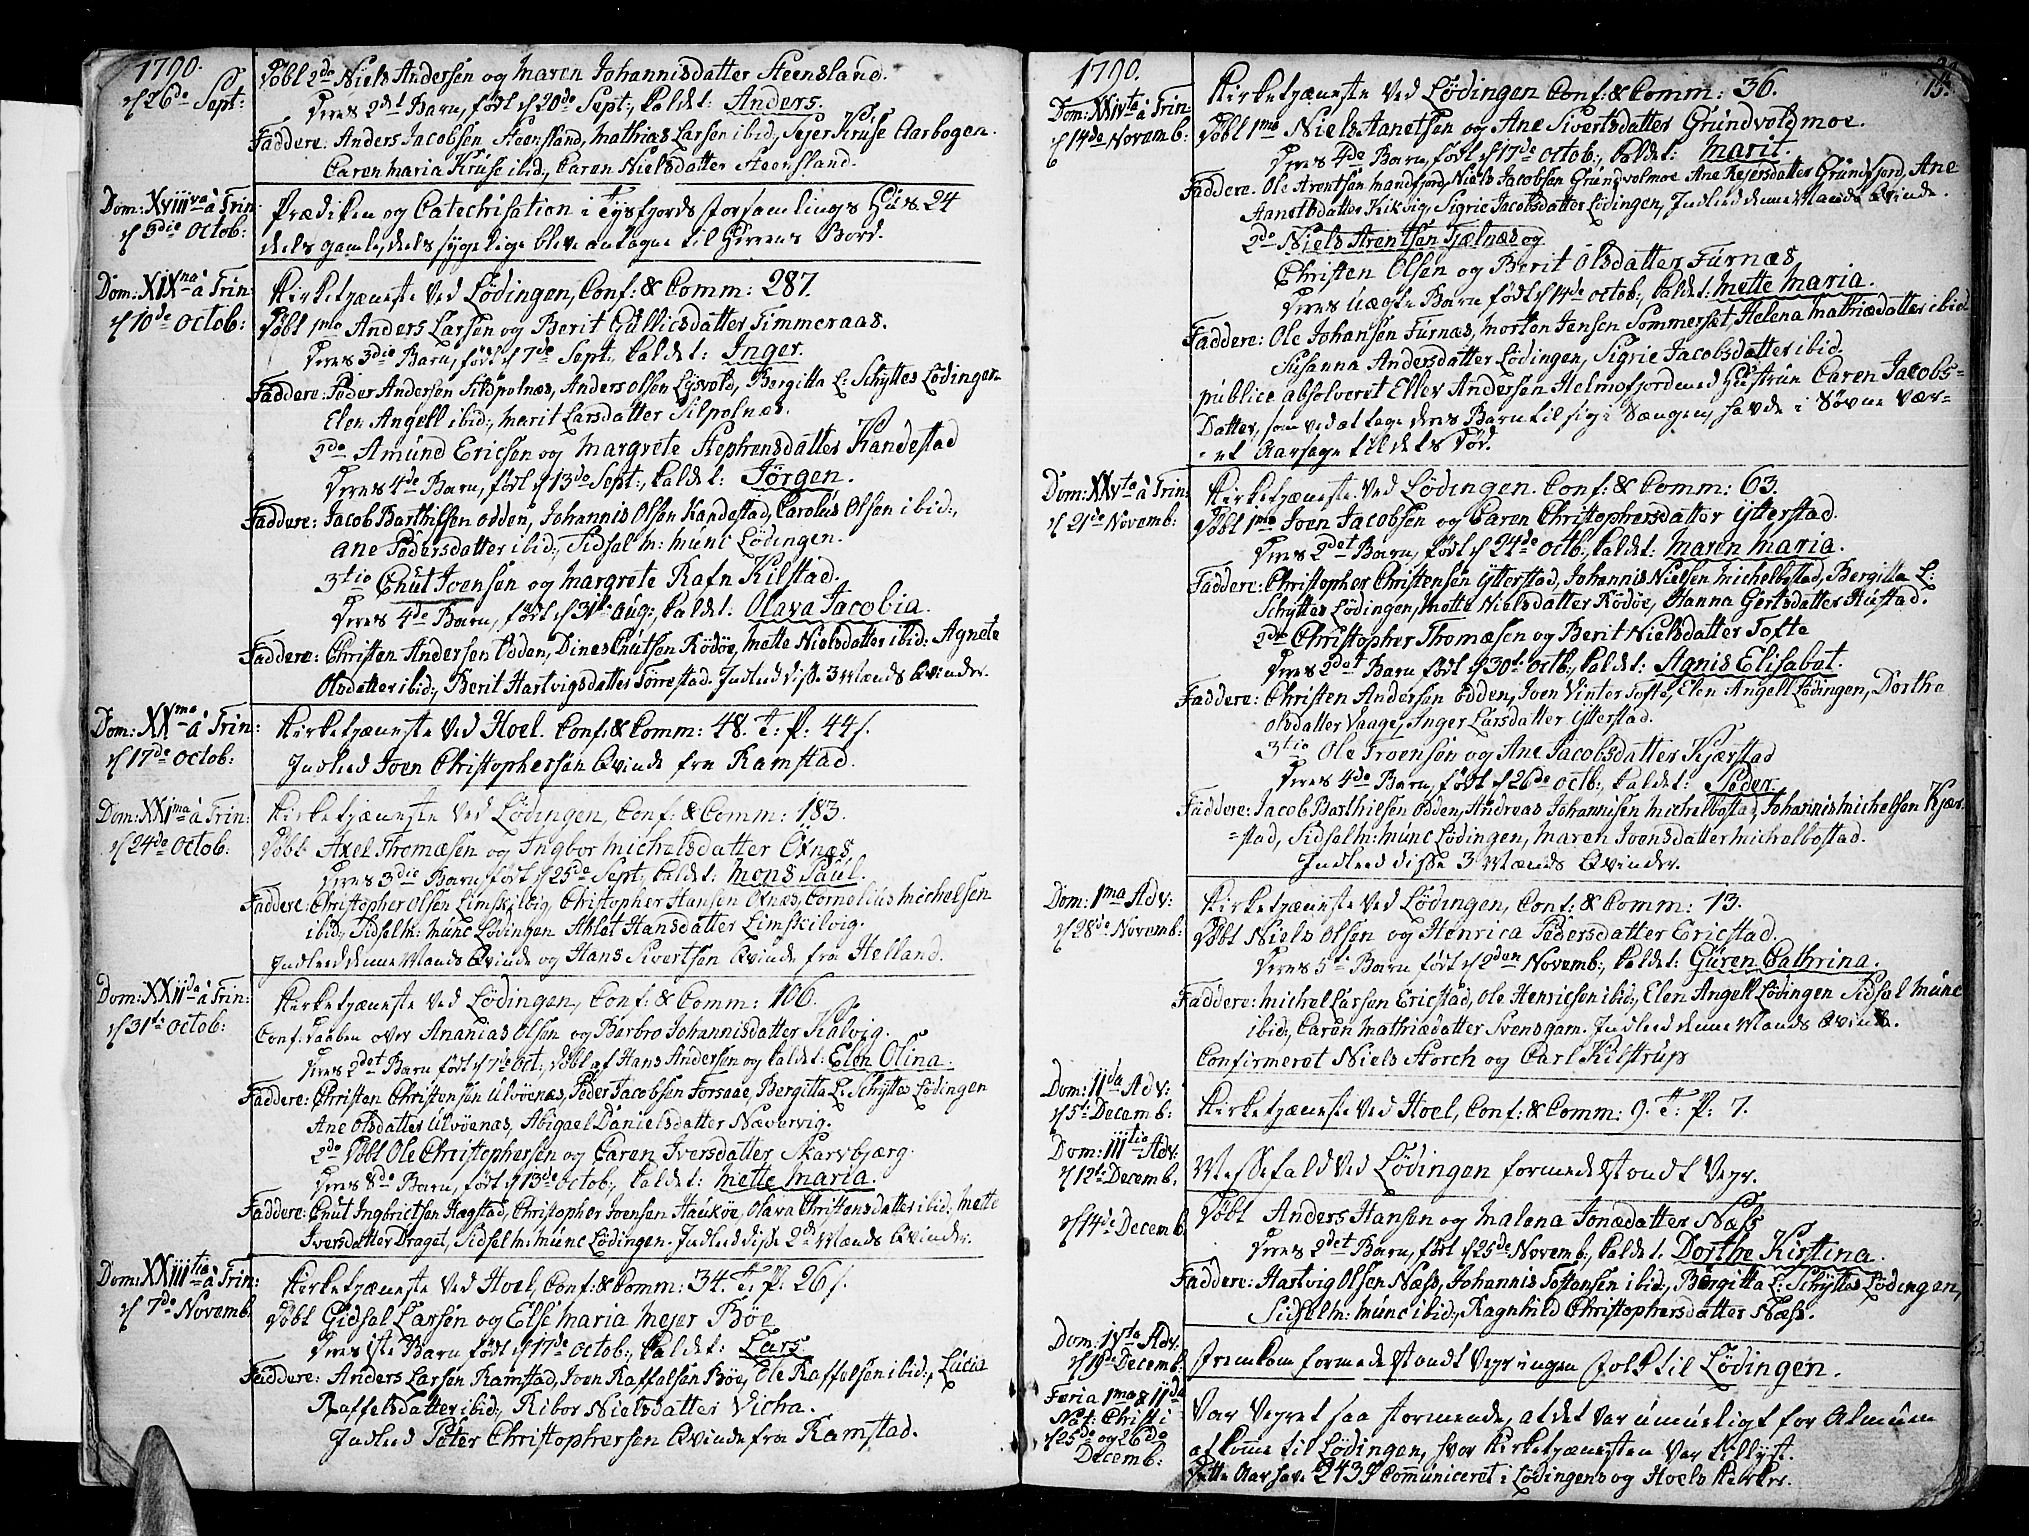 1790.
d 26de Sept:
Døbt 2do Niels Andersen og Maren Johannisdatter Steensland.
Deres 2det Barn, født d 20de Sept:, kaldet: Anders.
Faddere: Anders Jacobsen Steensland, Mathias Larsen ibid:, Sejer Kruse Aarbogen.
Caren Maria Kruse ibid:, Caren Nielsdatter Steensland.
Dom: XVIIIva à Trin:
d 3die Octob:
Prædiken og Catechisation i Tysfjords Forsamlings Huus. 24
deels gamle, deels sygelige bleve antagne til Herrens Bord.
Dom: XIXna à Trin:
d 10de Octob:
Kirketjæneste ved Lødingen, Conf: & Comm: 287.
Døbt 1mo Anders Larsen og Berit Gullicsdatter Timmeraas.
Deres 3die Barn, født d 7de Sept:, kaldet: Inger.
Faddere: Peder Andersen Sildpolnæs, Anders Olsen Lysvold, Bergitta L: Schyttes Lødingen
Elen Angell ibid:, Marit Larsdatter Silpolnæs.
2do Amund Ericsen og Margrete Stephensdatter Kandestad
Deres 4de Barn, født d 13de Sept:, kaldet: Jørgen.
Faddere: Jacob Barthilsen Odden, Johannis Olsen Kandestad, Carolus Olsen ibid:,
Ane Pedersdatter ibid:, Sidsel M: Munc Lødingen.
3tio Cnut Joensen og Margrete Rafn Kilstad.
Deres 4de Barn, født d 31te Aug:, kaldet: Olava Jacobia.
Faddere: Christen Andersen Odden, Dines Cnutsen Rödöe, Mette Nielsdatter ibid: Agnete
Olsdatter ibid:, Berit Hartvigsdatter Torrestad. Indled disse 3 Mænds Qvinder.
Dom: XXma à Trin:
d 17de Octob:
Kirketjæneste ved Hoel. Conf: & Comm: 48. T: P: 44 s.
Indled Joen Christophersen Qvinde fra Ramstad.
Dom: XXIma à Trin:
d 24de Octob:
Kirketjæneste ved Lødingen, Conf: & Comm: 183.
Døbt Axel Thomæsen og Ingbor Michelsdatter Oxnæs
Deres 3die Barn, født d 25de Sept:, kaldet: Mons Paul.
Faddere: Christopher Olsen Limskilvig, Christopher Hansen Oxnæs, Cornelius Michelsen
ibid:, Sidsel M: Munc Lødingen Ahlet Hansdatter Limskilvig.
Indled denne Mands Qvinde og Hans Sivertsen Qvinde fra Helland.
Dom: XXIIda à Trin:
d 31te Octob:
Kirketjæneste ved Lødingen, Conf: & Comm: 106.
Conf: Daaben over Ananias Olsen og Barbro Johannisdatter Kalvig.
Deres 2det Barn født d 7de Oct:, døbt af Hans Andersen og kaldet: Elen Olina.
Faddere: Christen Christensen Ulvöenæs, Peder Jacobsen Forsaae, Bergitta L: Schyttes Lødingen
Ane Olsdatter Ulvöenæs, Abigael Danielsdatter Nævervig.
2do Døbt Ole Christophersen og Caren Iversdatter Skarvbjærg.
Deres 8de Barn, født d 13de Octob:, kaldet: Mette Maria.
Faddere: Cnut Ingbrictsen Hægstad, Christopher Joensen Haukøe, Olava Christensdatter ibid:, Mette
Iversdatter Draget, Sidsel M: Munc Lødingen. Indled disse 2de Mænds Qvinder.
Dom: XXIIItia à Trin:
d 7de Novemb:
Kirketjæneste ved Hoel, Conf: & Comm: 34. T: P: 26 s.
Døbt Gidsel Larsen og Else Maria Mejer Bøe
Deres 1ste Barn født d 17de Octob:, kaldet: Lars.
Faddere: Anders Larsen Ramstad, Joen Raffelsen Bøe, Ole Raffelsen ibid:, Lucia
Raffelsdatter ibid:, Ribor Nielsdatter Vicha.
Indled Peter Christophersen Qvinde fra Ramstad.
1790.
13.
Dom: XXIVta à Trin:
d 14de Novemb:
Kirketjæneste ved Lødingen Conf: & Comm: 36.
Døbt 1mo Niels Aanetsen og Ane Sivertsdatter Grundvoldmoe.
Deres 4de Barn, født d 17de Octob:, kaldet: Marit.
Faddere. Ole Arentsen Mandfjord, Niels Jacobsen Grundvolmoe Ane Rejersdatter Grundfjord, Ane
Aanetsdatter Kikvig, Sigrie Jacobsdatter Lødingen, Indled denne Mands Qvinde.
2do Niels Arentsen Fjelnæs og
Christen Olsen og Berit Olsdatter Furnæs
Deres Uægte Barn født d 14de Octob:, kaldet: Mette Maria.
Faddere: Ole Johansen Furnæs, Morten Jensen Sommerset, Helena Mathiædatter ibid:
Susanna Andersdatter Lødingen, Sigrie Jacobsdatter ibid.
publice absolveret Eller Andersen Helmofjord med Hustrue Caren Jacobs=
Datter, som ved at tage deres Barn til sig i Sængen, havde i Søvne vær=
=et Aarsage til dets Død.
Dom: XXVta à Trin:
d 21de Novemb:
Kirketjæneste ved Lødingen. Conf: & Comm: 63.
Døbt 1mo Joen Jacobsen og Caren Christophersdatter Ytterstad.
Deres 2det Barn, født d 24de Octb:, kaldet: Maren Maria.
Faddere: Christopher Christensen Ytterstad, Johannis Nielsen Michelbostad, Bergitta L:
Schyttes Lødingen, Mette Nielsdatter Rödöe, Hanna Gertsdatter Hustad.
2do Christopher Thomæsen og Berit Nielsdatter Tofte
Deres 2det Barn født d 30te Octb:, kaldet: Agnis Elisabet.
Faddere: Christen Andersen Odden, Joen Vinter Tofte, Elen Angell Lödingen, Dorthe
Olsdatter Vaage, Inger Larsdatter Ytterstad.
3tio Ole Troensen og Ane Jacobsdatter Kjærstad
Deres 4de Barn, født d 26de Octb:, kaldet: Peder.
Faddere: Jacob Barthilsen Odden, Andreas Johannisen Michelbostad, Johannis Michelsen Kjær=
=stad, Sidsel M: Munc Lødingen, Maren Joensdatter Michelbostad.
Indled disse 3 Mænds Qvinder.
Dom: 1ma Adv:
d 28de Novemb:
Kirketjæneste ved Lødingen, Conf: & Comm: 13.
Døbt Niels Olsen og Henrica Pedersdatter Ericstad.
Deres 5te Barn født d 2den Novemb:, kaldet: Guren Cathrina.
Faddere: Michel Larsen Ericstad, Ole Henricsen ibid:, Elen Angell Lødingen Sidsel Munc
ibid:, Caren Mathiædatter Svensgam. Indled denne Mands Qvinde.
Confirmeret Niels Storch og Carl Kilstrup
Dom: IIda Adv:
d 5te Decemb:
Kirketjæneste ved Hoel, Conf: & Comm: 9. T: P: 7.
Dom: IIItia Adv:
d 12te Decemb:
Messefald ved Lødingen formedelst ondt Vejr.
d 14de Decemb:
Døbt Anders Hansen og Malena Jonædatter Næss
Deres 2det Barn, født d 25de Novemb:, kaldet: Dorthe Kirstina.
Faddere: Hartvig Olsen Næss, Johannis Tostensen ibid:, Bergitta L: Schyttes Lødingen,
Sidsel M: Munc ibid:, Ragnhild Christophersdatter Næss.
Dom: IVta Adv:
d 19de Decemb:
Fremkom formedelst ondt Vejr ingen Folk til Lødingen.
Feria 1ma & IIda
Nat: Christi
d 25de og 26de
Decemb:
Var Vejret saa stormende, at det var umueligt for Almuen
at komme til Lødingen, hvor Kirketjænesten var tillyst.
Dette Aar have 2439 Communiceret i Lødingens og Hoels Kirker.